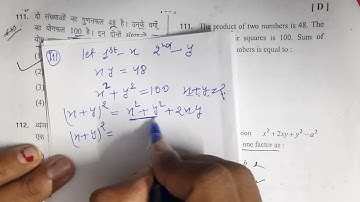 [ D ]
111. दो संख्याओं का गुणनफल 48 है। उनके वर्गों
का योगफल 100 है। इन दोनों
111. The product of two numbers is 48. The
squares is 100. Sum of
numbers is equal to :
111
let 1st - x 2nd - y
xy = 48
x² + y² = 100 x+y=?
(x+y)² = x² + y² + 2xy
(x+y)² =
(1)
(2)
(3)
(4)
112.
एक
x² + 2xy + y² - a²
one factor as :